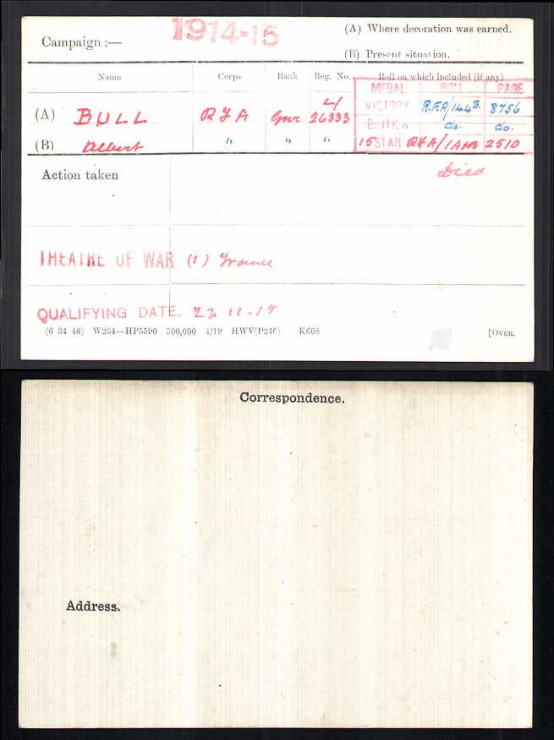 1914-15
(A) Where decoration was earned.
Campaign :—
(B) Present situation.
Name Corps Rank Reg. No. Roll on which included (if any)
MEDAL ROLL PAGE
(A) BULL RFA Gnr L/26333 VICTORY R.F.A/144B. 8756
BRITISH do. do.
(B) Albert " " " 15 STAR RFA/1AHB 2510
Action taken Died
THEATRE OF WAR (1) France
QUALIFYING DATE. 11-15
(6 34 46) W234—HP5590 500,000 4/19 HWV(P240) K608 [OVER.
Correspondence.
Address.